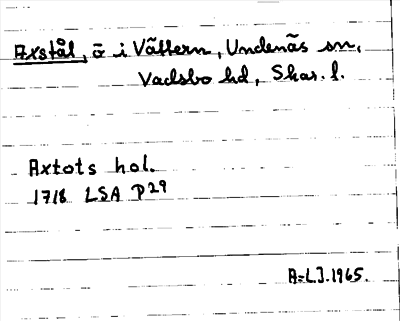 Axstål, ö i Vättern, Undenäs sn,
Vadsbo hd, Skar. l.
Axtots hol.
1718 LSA P29
A-L.J. 1965.